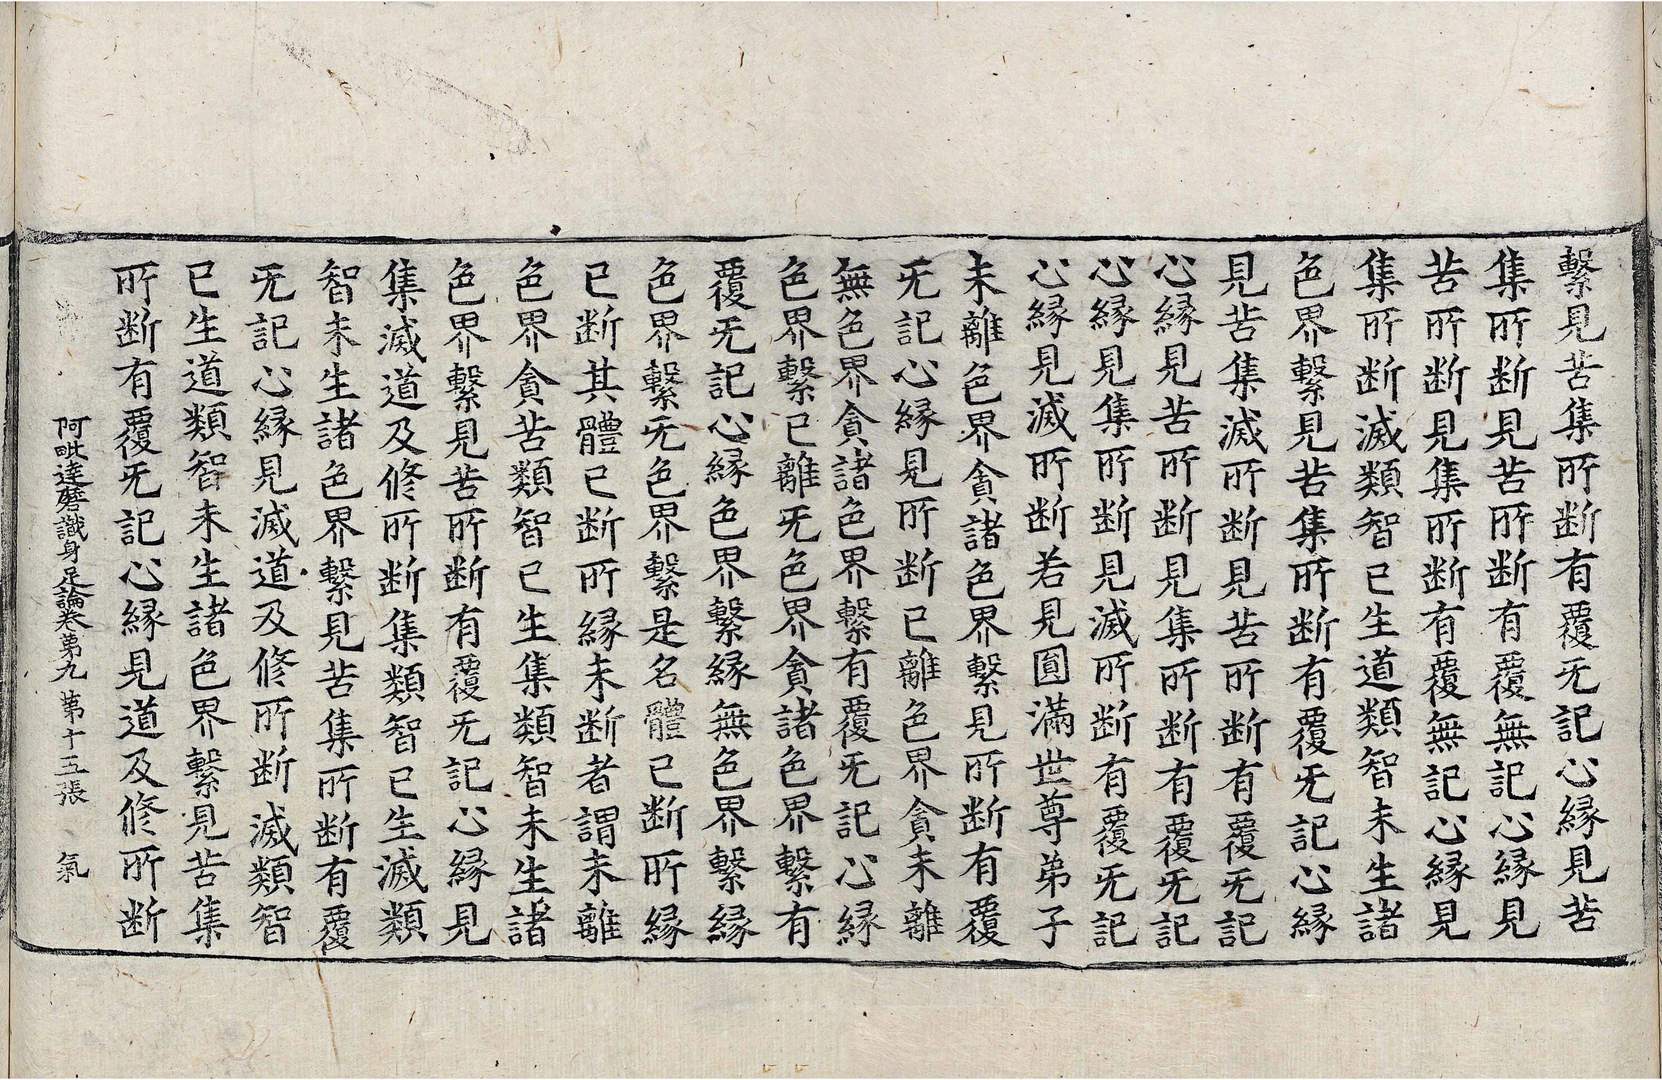 繫見苦集所断有覆无記心緣見苦
集所断見苦所断有覆無記心緣見
苦所断見集所断有覆無記心緣見
集所断滅類智已生道類智未生諸
色界繫見苦集所断有覆无記心緣
見苦集滅所断見苦所断有覆无記
心緣見苦所断見集所断有覆无記
心緣見集所断見滅所断有覆无記
心緣見滅所断若見圎滿世尊弟子
未離色界貪諸色界繫見所断有覆
无記心緣見所断已離色界貪未離
無色界貪諸色界繫有覆无記心緣
色界繫已離无色界貪諸色界繫有
覆无記心緣色界繫緣無色界繫緣
色界繫无色界繫是名體已断所緣
已断其體已断所緣未断者謂未離
色界貪苦類智已生集類智未生諸
色界繫見苦所断有覆无記心緣見
集滅道及修所断集類智已生滅類
智未生諸色界繫見苦集所断有覆
无記心緣見滅道及修所断滅類智
已生道類智未生諸色界繫見苦集
所断有覆无記心緣見道及修所断
阿毗達磨識身足論卷第九 第十五張 氣